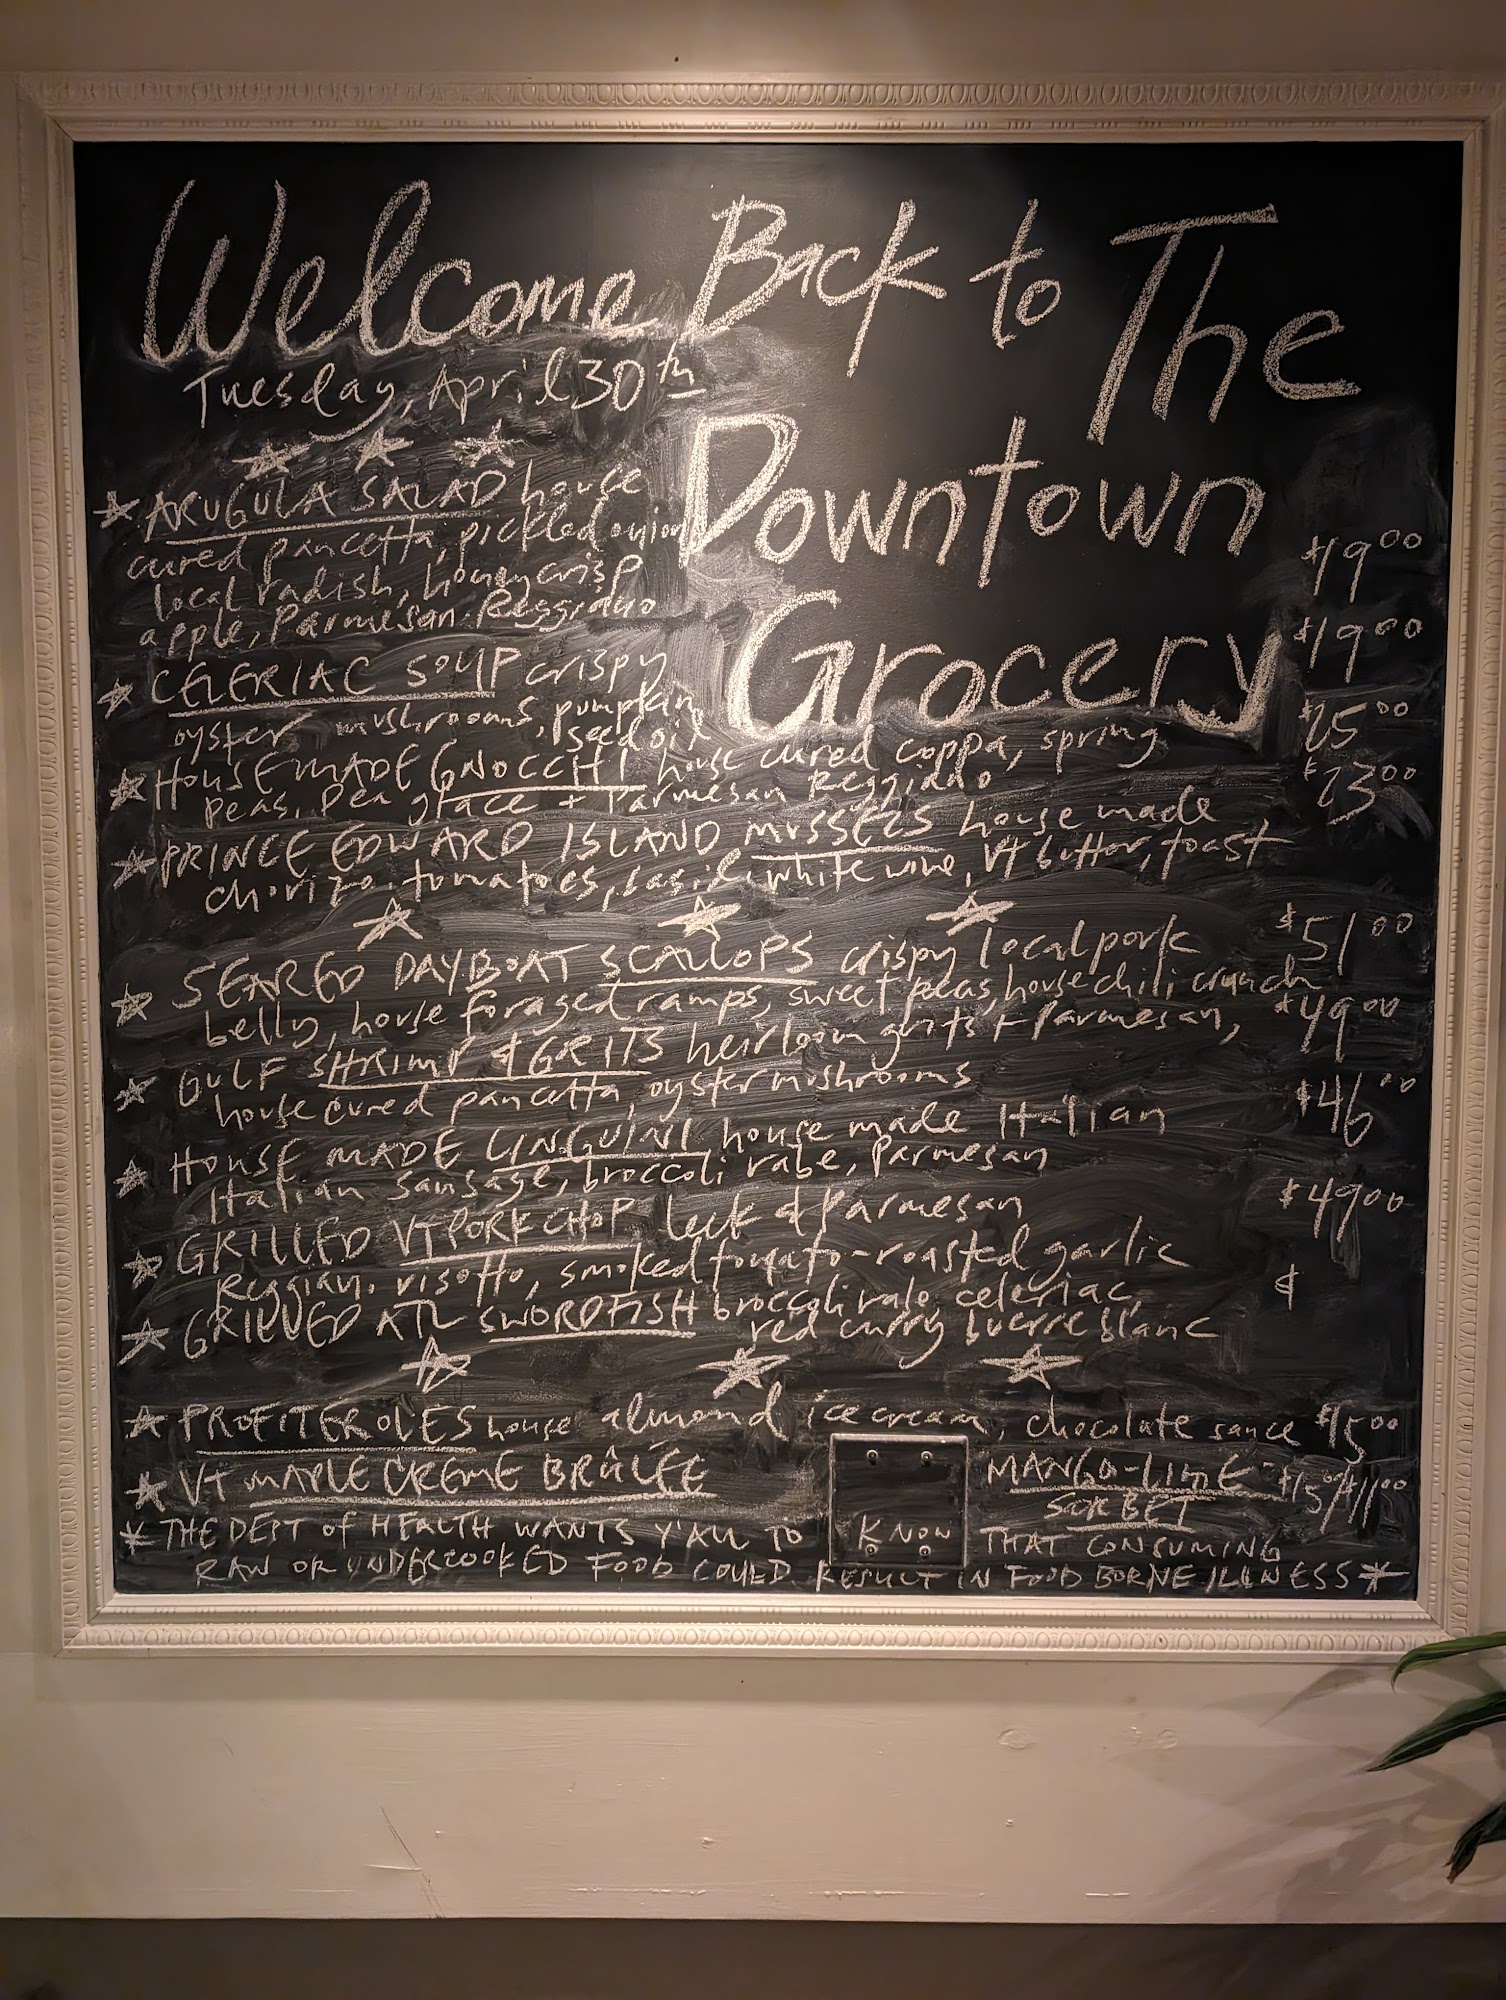 Welcome Back to The
Tuesday, April 30th
Downtown
Grocery
ARUGULA SALAD house
cured pancetta, pickled onion
local radish, honeycrisp
apple, Parmesan Reggiano
$19.00
CELERIAC SOUP crispy
oyster mushrooms, pumpkin
seed oil
$19.00
HOUSE MADE GNOCCHI house cured coppa, spring
peas, pea grace + Parmesan Reggiano
$25.00
PRINCE EDWARD ISLAND MUSSELS house made
chorizo, tomatoes, basil, white wine, VT butter, toast
$23.00
SEARED DAYBOAT SCALLOPS crispy local pork
belly, house foraged ramps, sweet peas, house chili crunch
$51.00
GULF SHRIMP & GRITS heirloom grits + Parmesan,
house cured pancetta, oyster mushrooms
$49.00
HOUSE MADE LINGUINI house made Italian
Italian sausage, broccoli rabe, Parmesan
$46.00
GRILLED VT PORK CHOP leek & Parmesan
Reggiano risotto, smoked tomato-roasted garlic
$49.00
GRILLED ATL SWORDFISH broccoli rabe, celeriac,
red curry buerre blanc
$
PROFITEROLES house almond ice cream, chocolate sauce $15.00
VT MAPLE CREME BRÛLÉE MANGO-LIME $15.00/$11.00
SORBET
* THE DEPT OF HEALTH WANTS Y'ALL TO KNOW THAT CONSUMING
RAW OR UNDERCOOKED FOOD COULD RESULT IN FOOD BORNE ILLNESS *